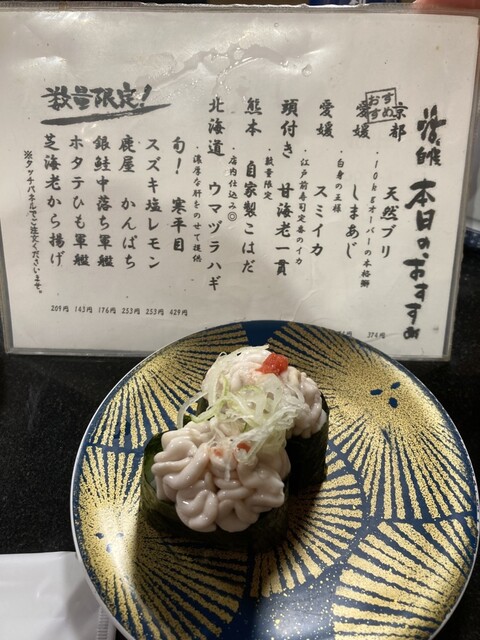 本日のおすすめ
京都 天然ブリ
10kgオーバーの本格鰤
374円
おすすめ
愛媛 しまあじ
白身の王様
愛媛 スミイカ
江戸前寿司定番のイカ
頭付き 甘海老一貫
数量限定
熊本 自家製こはだ
店内仕込み◎
北海道 ウマヅラハギ
濃厚な肝をのせて提供
旬! 寒平目 429円
スズキ塩レモン 253円
鹿屋 かんぱち 253円
銀鮭中落ち軍艦 176円
ホタテひも軍艦 143円
芝海老から揚げ 209円
数量限定!
※タッチパネルでご注文くださいませ。